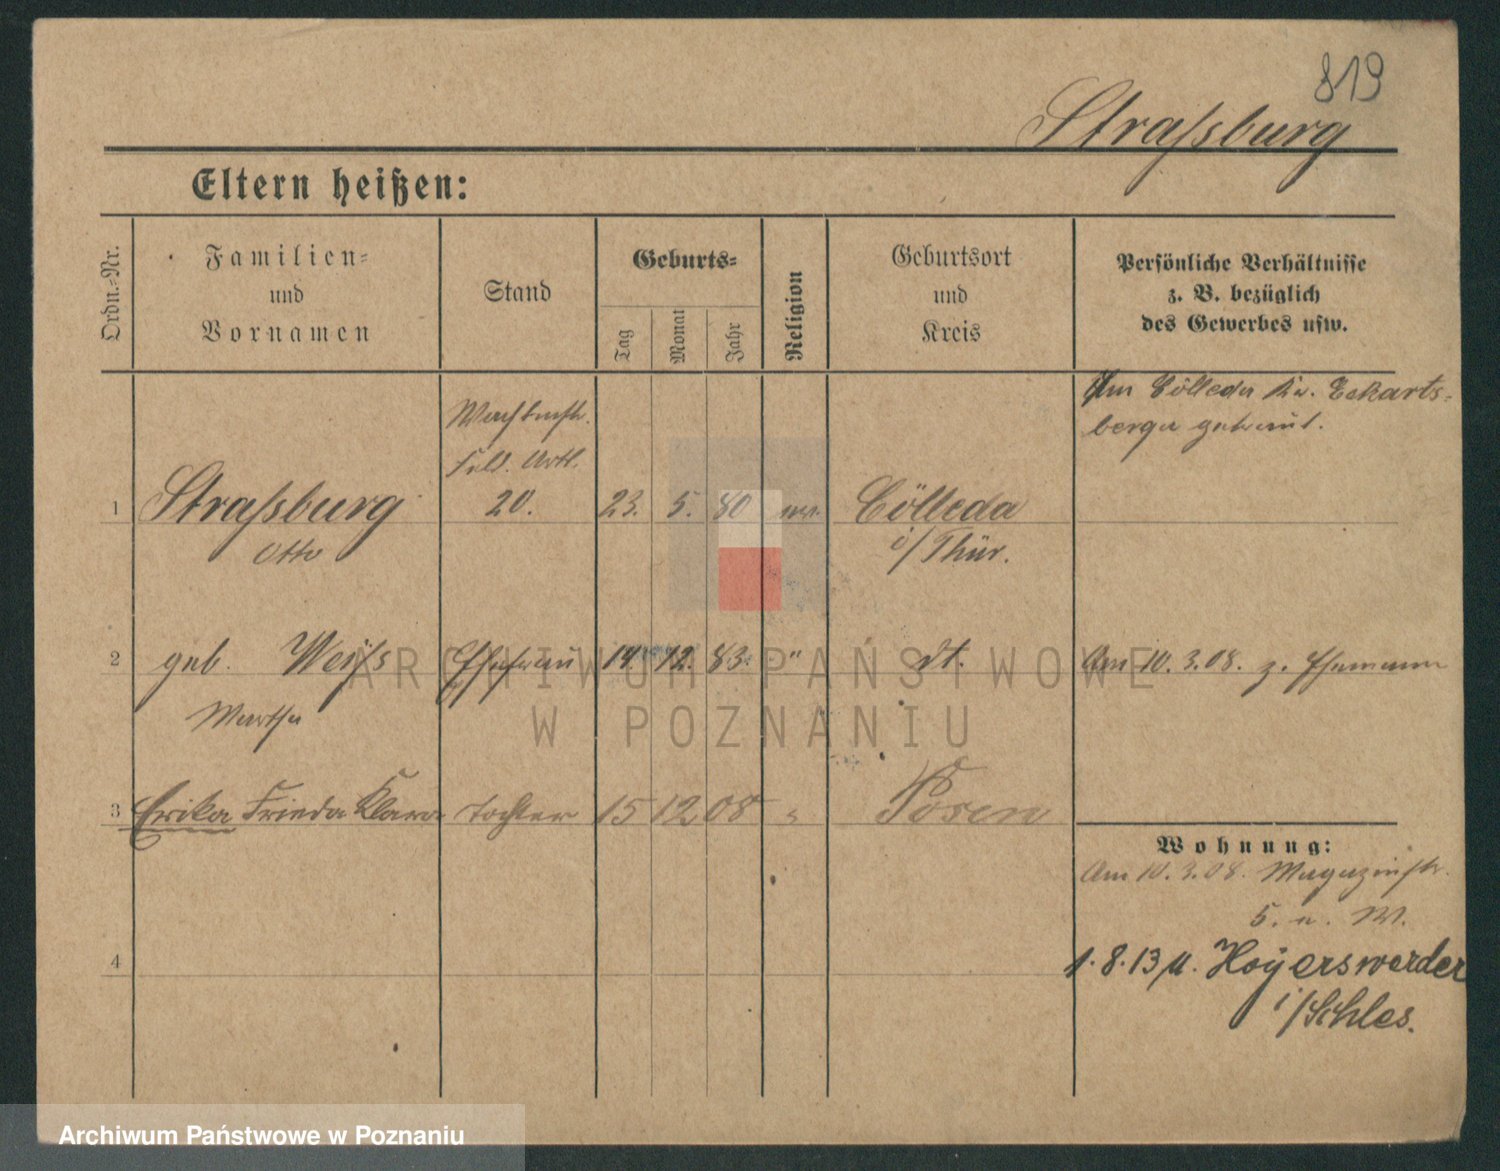 819
Straßsburg
Eltern heißen:
Ordn.-Nr.
Familien-
und
Vornamen
Stand
Geburts-
Tag
Monat
Jahr
Religion
Geburtsort
und
Kreis
Persönliche Verhältnisse
z. B. bezüglich
des Gewerbes usw.
In Cölleda Kr. Eckarts-
berga getraut.
Feld. Artl.
1 Straßsburg 20. 23. 5. 80 Cölleda
Otto i/Thür.
2 geb. Weiß Ehefrau 14. 12. 83. " dt. Am 10.3.08. z. Ehemann
Martha
3 Erika Frieda Klara Tochter 15 12 08 " Posen
Wohnung:
Am 10.3.08. Magazinstr.
5. b. W.
4
1.8.13 n. Hoyerswerder
i/Schles.
ARCHIWUM PAŃSTWOWE
W POZNANIU
Archiwum Państwowe w Poznaniu